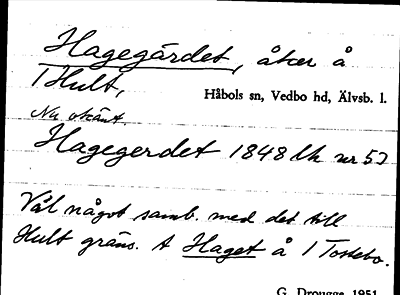 Hagegärdet, åker å
1 Hult,
Håbols sn, Vedbo hd, Älvsb. l.
Nu okänt.
Hagegerdet 1848 lh nr 53
Väl något samb. med det till
Hult gräns. t Haget å 1 Tostebo.
G. Drougge 1951